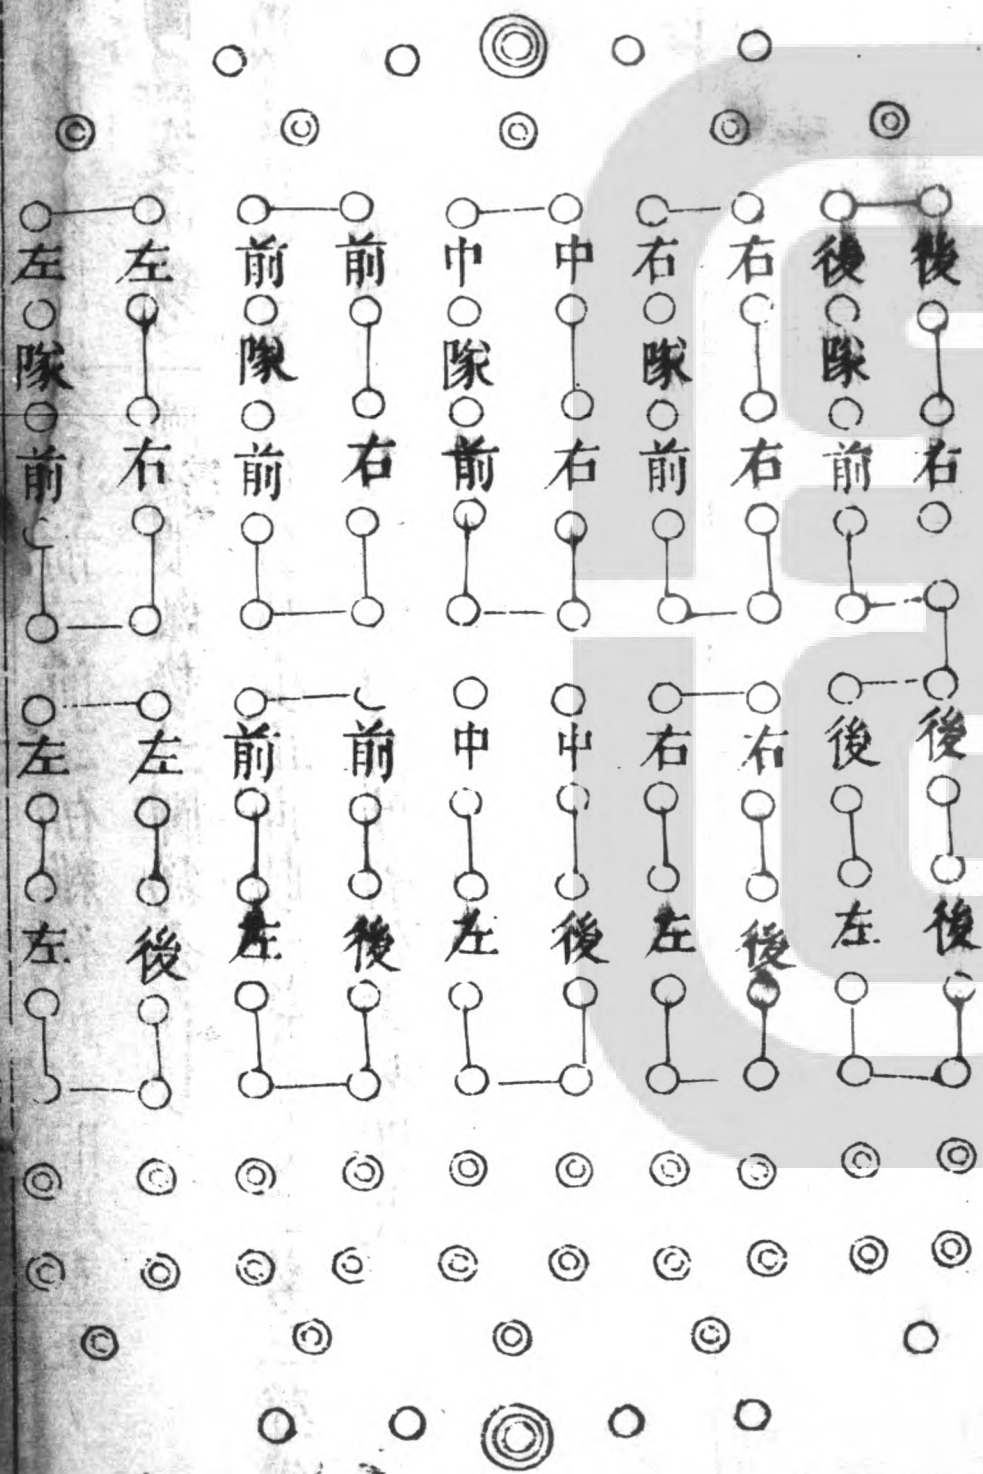 後右
後隊前
右右
右隊前
中右
中隊前
前右
前隊前
左右
左隊前
後後
後左
右後
右左
中後
中左
前後
前左
左後
左左